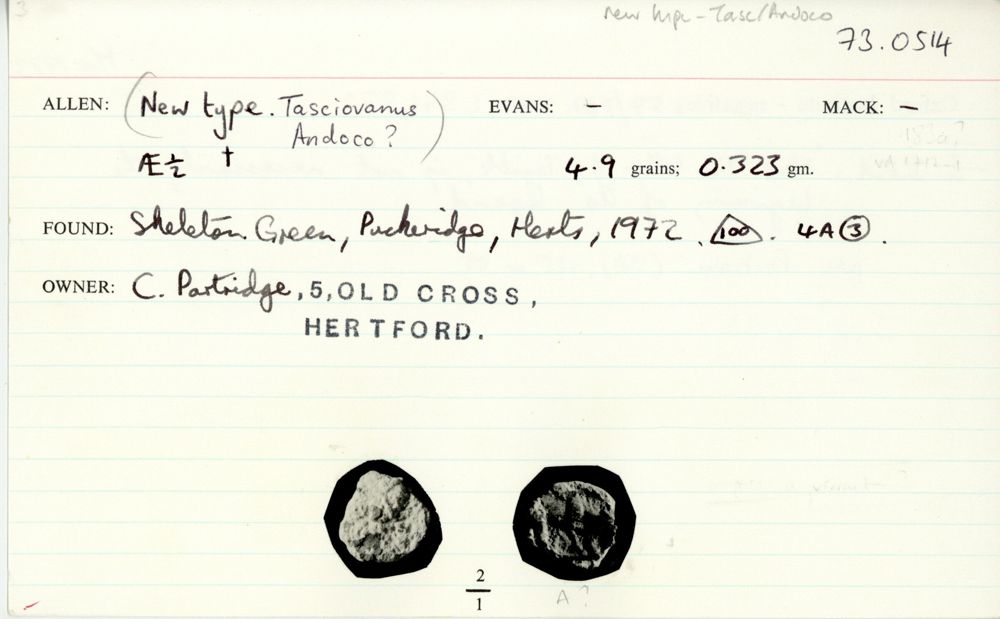 3
new type - Tasc/Andoco
73.0514
ALLEN: (New type. Tasciovanus EVANS: - MACK: -
Andoco?)
Æ ½ † 4.9 grains; 0.323 gm.
FOUND: Skeleton Green, Puckeridge, Herts, 1972. 100. 4A 3.
OWNER: C. Partridge, 5, OLD CROSS,
HERTFORD.
2
1
A?